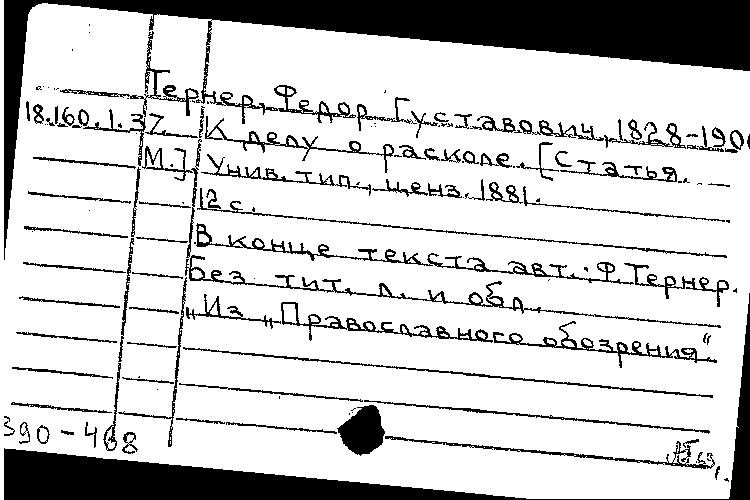 Тернер, Федор Густавович, 1828-190
18.160.1.37. К делу о расколе. [Статья.
М.], Унив. тип., ценз. 1881.
12 с.
В конце текста авт.: Ф. Тернер.
Без тит. л. и обл.
„Из „Православного обозрения“.
390-468